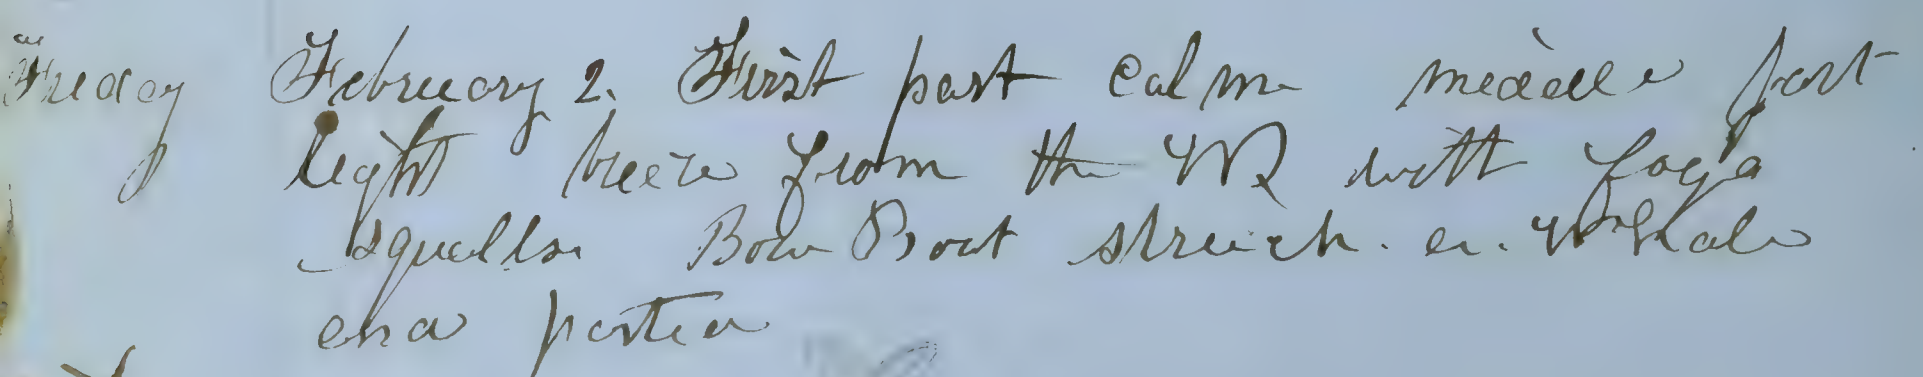 Friday February 2. First part calm middle part
light breeze from the W with fog &
squalls. Bow Boat struck a Whale
and parted